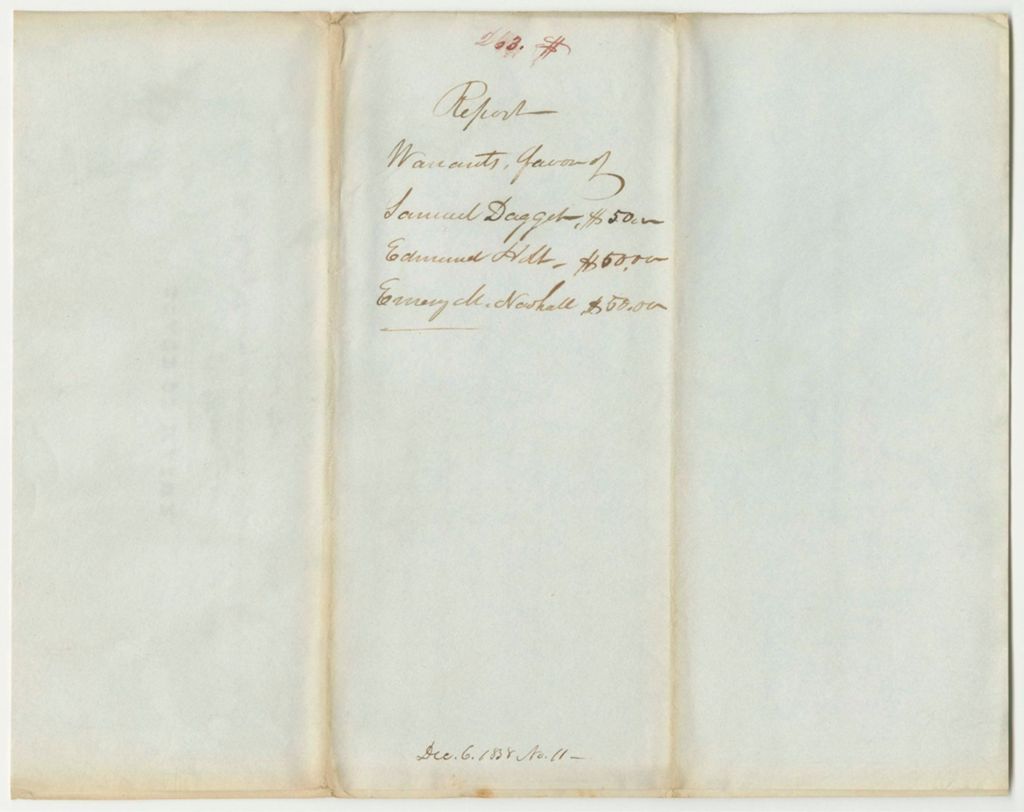 263. #
Report
Warrants, favor of
Samuel Dagget, $50.00
Edmund Hilt - $50.00
Emery M. Newhall $50.00
Dec. 6. 1838 No. 11 -